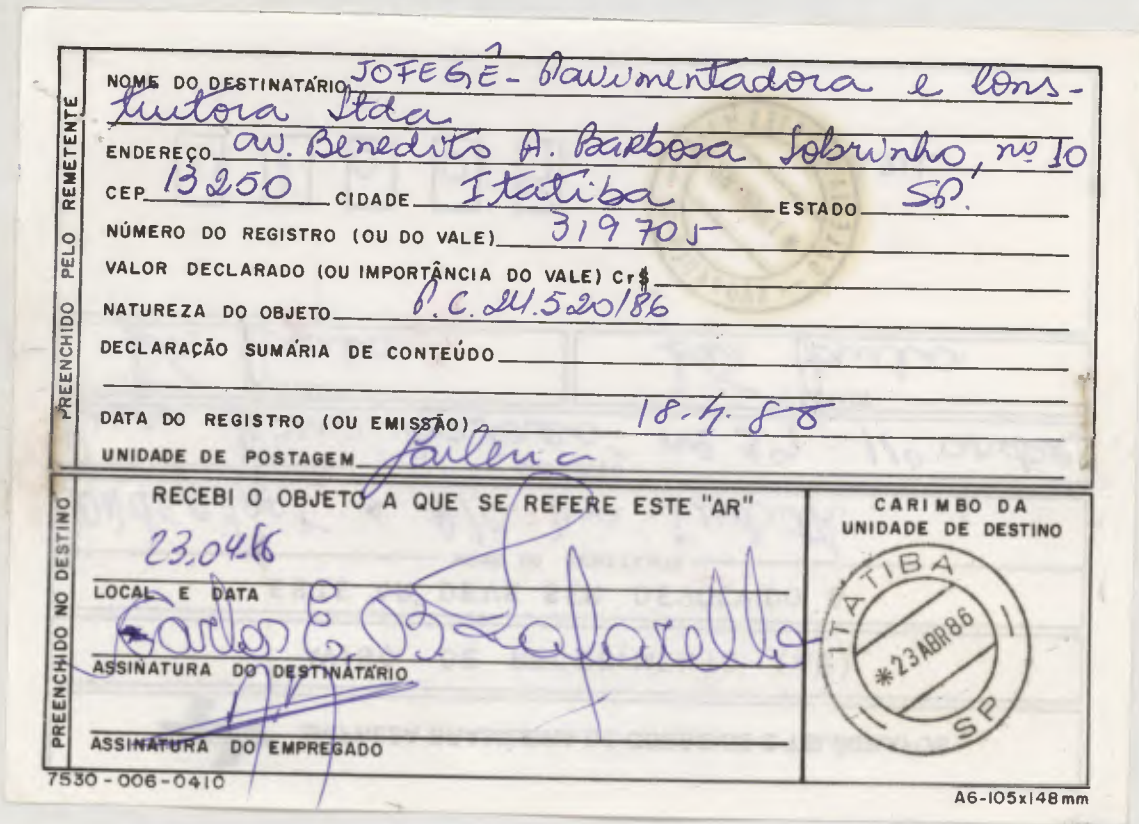 PREENCHIDO PELO REMETENTE
NOME DO DESTINATÁRIO JOFEGÊ - Pavimentadora e Cons-
trutora Ltda
ENDEREÇO av. Benedito A. Barbosa Sobrinho, nº 10
CEP 13250 CIDADE Itatiba ESTADO SP.
NÚMERO DO REGISTRO (OU DO VALE) 319705
VALOR DECLARADO (OU IMPORTÂNCIA DO VALE) Cr$
NATUREZA DO OBJETO P.C. 24.520/86
DECLARAÇÃO SUMÁRIA DE CONTEÚDO
DATA DO REGISTRO (OU EMISSÃO) 18.4.86
UNIDADE DE POSTAGEM
PREENCHIDO NO DESTINO
RECEBI O OBJETO A QUE SE REFERE ESTE "AR"
23.04.86
LOCAL E DATA
Carlos E. B.
ASSINATURA DO DESTINATÁRIO
ASSINATURA DO EMPREGADO
CARIMBO DA
UNIDADE DE DESTINO
ITATIBA
*23 ABR 86
SP
7530-006-0410
A6-105x148mm